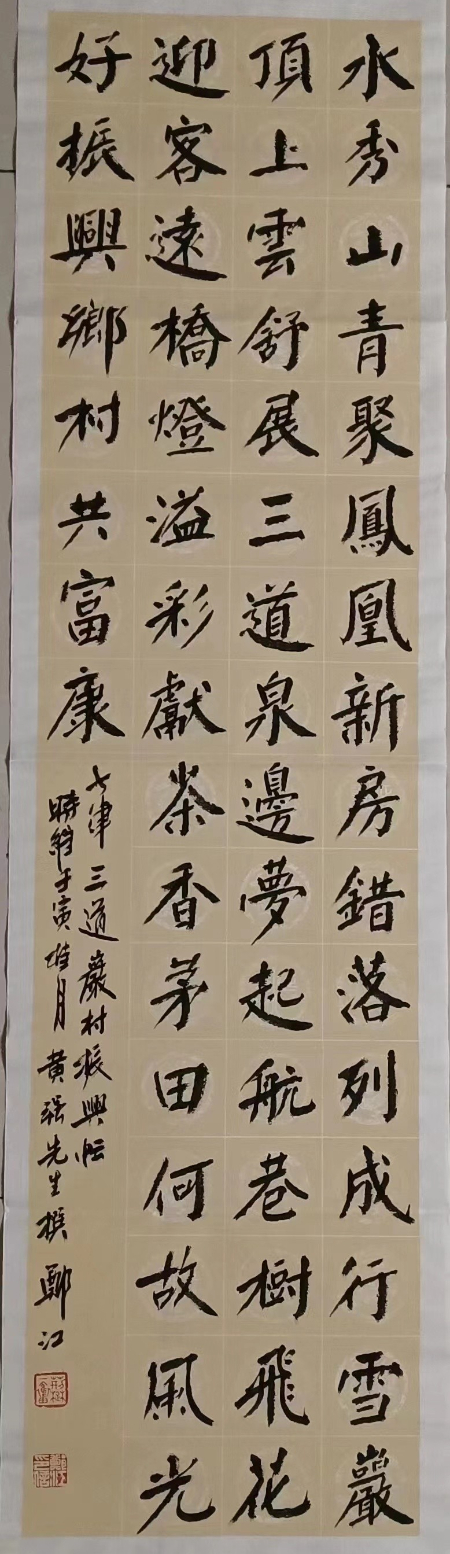 水秀山青聚鳳凰新房錯落列成行雪巖
頂上雲舒展三道泉邊夢起航巷樹飛花
迎客遠橋燈溢彩獻茶香茅田何故風光
好振興鄉村共富康
七律 三道巖村振興
時維壬寅 月 黄强先生撰 鄭江